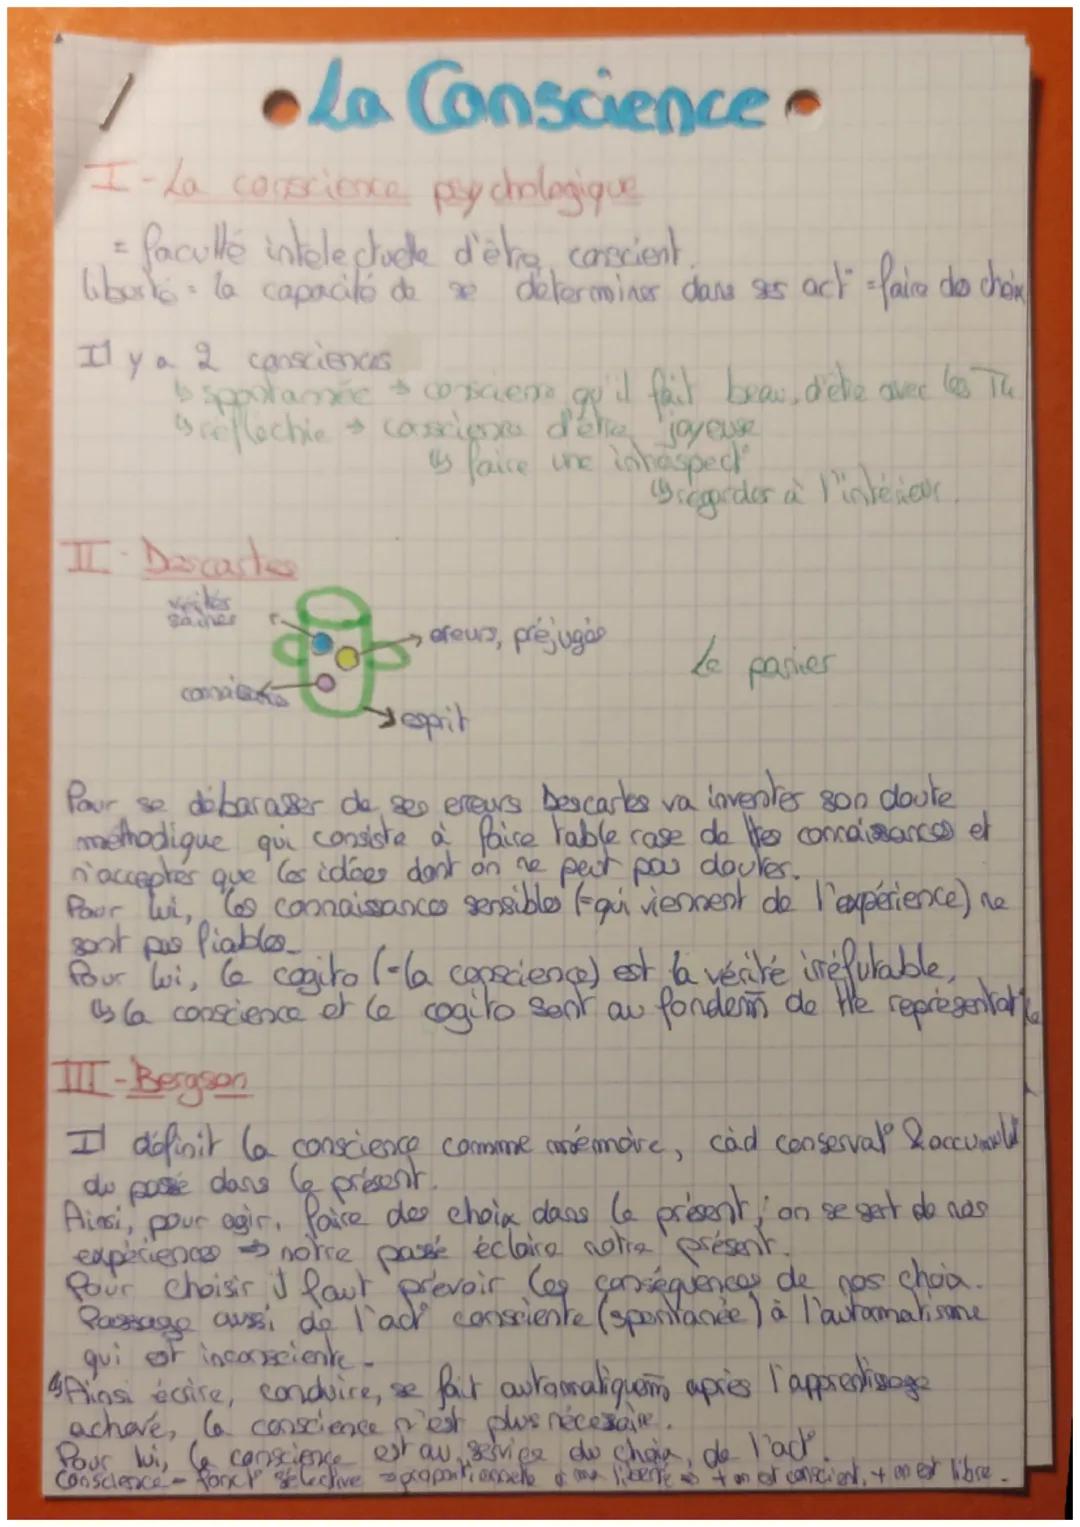 La Conscience
I - La conscience psychologique
= faculté intelectuelle d'être conscient.
liberté = la capacité de se déterminer dans ses act° = faire des choix
Il y a 2 consciences
↳ spontannée → conscience qu'il fait beau, d'être avec les
↳ réflechie → conscience d'être joyeuse
↳ faire une introspect°
↳ regarder à l'intérieur.
II - Descartes
vérités
saines
ereurs, préjugés
Le panier
esprit
Pour se débarasser de ses erreurs Descartes va inventer son doute
méthodique qui consiste à faire table rase de ttes connaissances et
n'accepter que les idées dont on ne peut pas douter.
Pour lui, les connaissances sensibles (=qui viennent de l'expérience) ne
sont pas fiables.
Pour lui, le cogito (=la conscience) est la vérité irréfutable,
↳ la conscience et le cogito sont au fondem̄ de tte représentat°
III - Bergson
Il définit la conscience comme mémoire, càd conservat° & accumul
du passé dans le présent.
Ainsi, pour agir, faire des choix dans le présent, on se sert de nos
expériences → notre passé éclaire notre présent.
Pour choisir il faut prévoir les conséquences de nos choix.
Passage aussi de l'act° consciente (spontanée) à l'automatisme
qui est inconsciente.
↳ Ainsi écrire, conduire, se fait automatiquem̄ après l'apprentissage
achevé, la conscience n'est plus nécessaire.
Pour lui, la conscience est au service du choix, de l'act°.
Conscience = fonct° sélective → proportionnelle à ma liberté → + on est conscient, + on est libre.